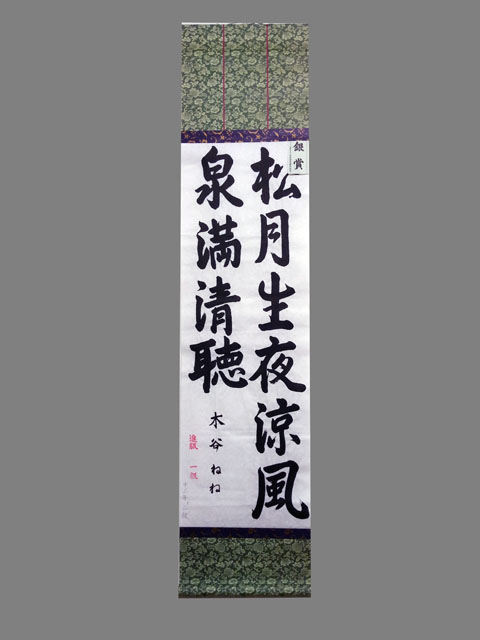 銀賞
松月生夜涼風
泉満清聴
木谷ねね
進級 一級